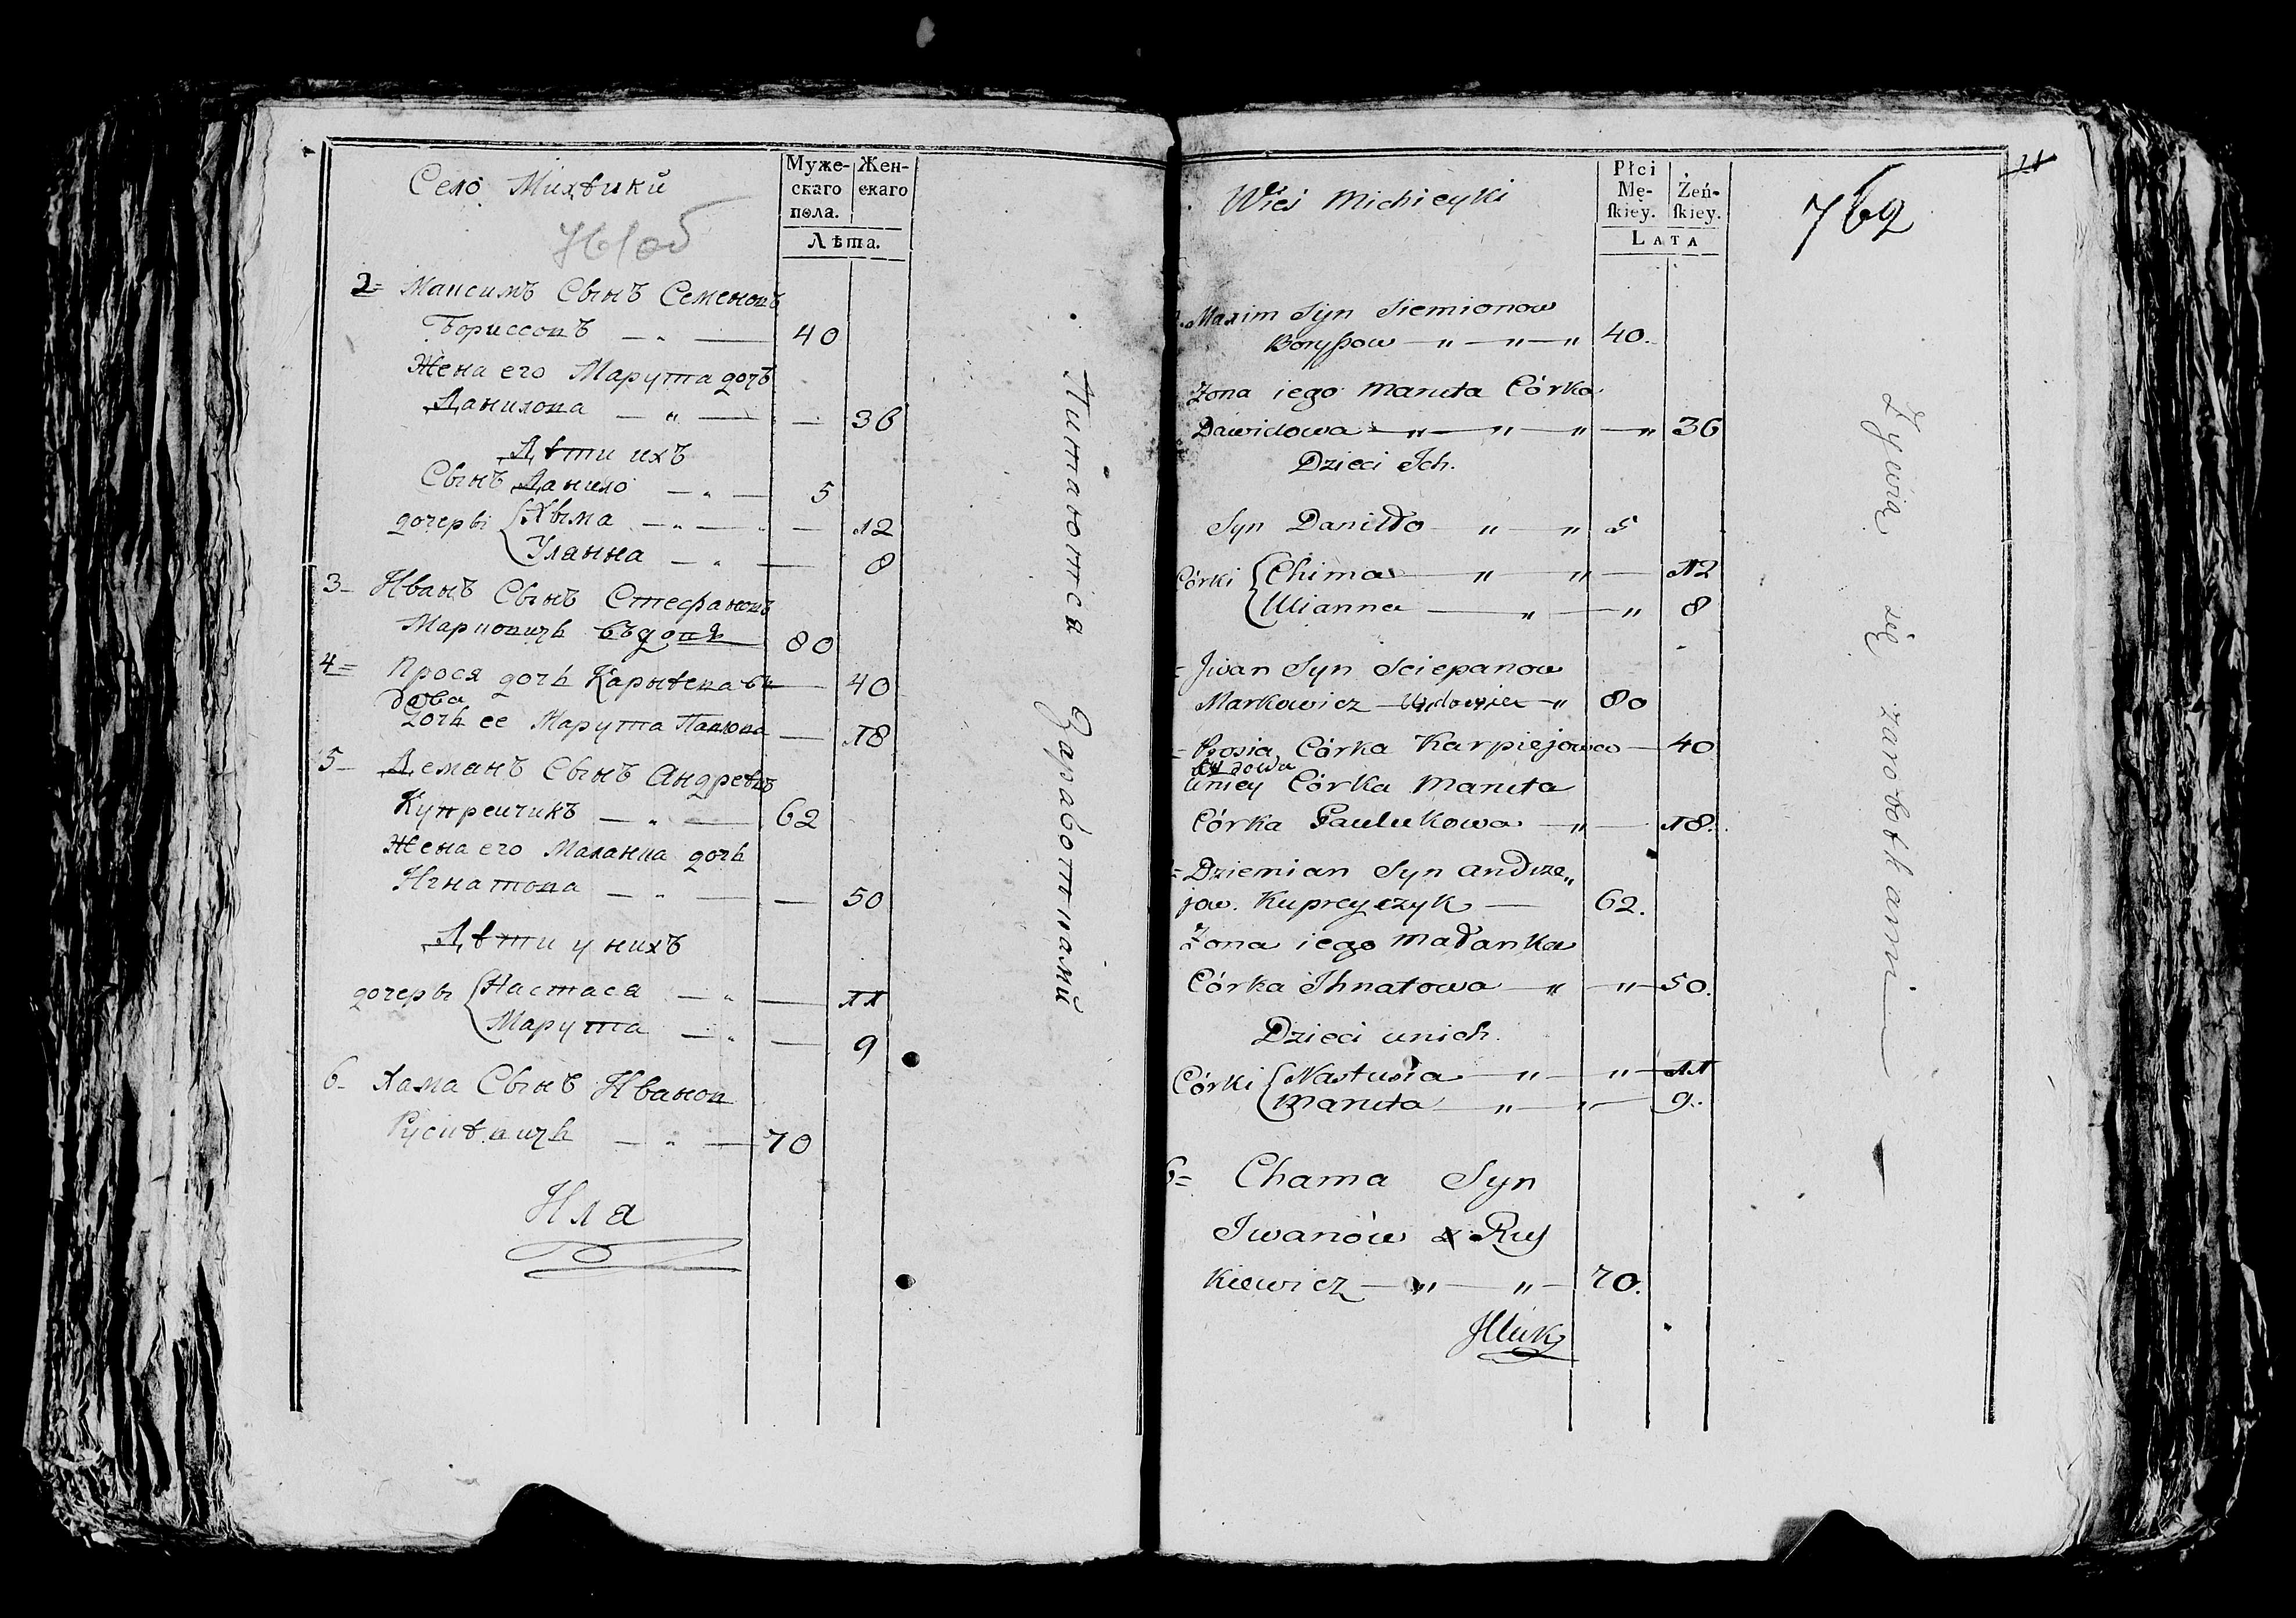 Село Михѣики
Муже-
скаго
пола.
Жен-
скаго
Лѣта.
761об
2= Максимъ Сынъ Семеновъ
Бориссовъ — „ — 40
Жена его Марута дочь
Данилова — „ — — 36
Дѣти ихъ
Сынъ Данило — „ — 5
дочеры { Хыма — „ — — 12
Улянна — „ — 8
3- Иванъ Сынъ Стефановъ
Марковичь въдовѣ 80
4= Прося дочь Карпѣева въ — 40
дова
дочь ее Марута Павлова — 18
5- Деманъ Сынъ Андреевъ
Купреичикъ — „ — 62
Жена его Маланка дочь
Игнатова — „ — — 50
Дѣти у нихъ
дочеры { Настася — „ — 11
Марута — „ — 9
6- Хама Сынъ Иванов
Рускѣвичь — „ — 70
Питаются Заработками
Wieś Michieyki
Płci
Mę-
ſkiey.
Żeń-
ſkiey.
LATA
21
762
Maxim Syn Siemionow
Boryſsow — „ — „ — „ 40.
Zona iego Maruta Córka
Dawidowa — „ — „ — „ — „ 36
Dzieci Ich.
Syn Daniłło — „ — „ 5
Córki { Chima — „ — „ — 12
Ulianna — „ — „ 8
= Jwan Syn Sciepanow
Markowicz — Wdowiec — „ 80
= Prosia Córka Karpiejowa — 40
Wdowa
uniey Córka Maruta
Córka Pawlukowa — „ — 18.
= Dziemian Syn Andrze„
jow. Kupreyczyk — 62.
Zona iego Małanka
Córka Ihnatowa — „ — „ — 50.
Dzieci unich.
Córki { Nastusia — „ — „ — 11
Maruta — „ — „ — 9.
6= Chama Syn
Iwanów Ruſ
kiewicz — „ — „ — 70.
Żywią się zarobtkami